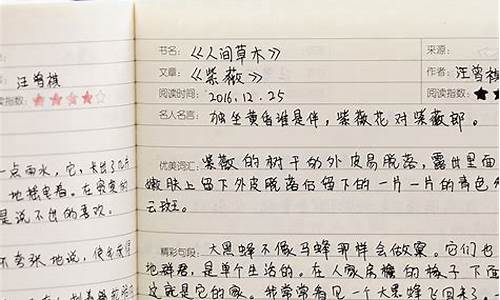 汪曾祺
阅读指数：
一点雨水，它，长出了几片
地摇曳着。在寂寞的
是说不出的喜欢。
不夸张地说，使我觉得
书名：《人间草木》
来源：
文章：《紫薇》
作者：汪曾祺
阅读时间：2016.12.25
阅读指数：
名人名言：独坐黄昏谁是伴，紫薇花对紫薇郎。
优美词汇：紫薇的树干的外皮易脱落，露出里面
嫩肤上留下外皮脱落后留下的一片一片的青色
云斑。
精彩句段：大黑蜂不像马蜂那样会做窠。它们也
地群君，是单个生活的。在人家房檐的椽子下面
这就是它的家。我常常看见一个大黑蜂飞回来了